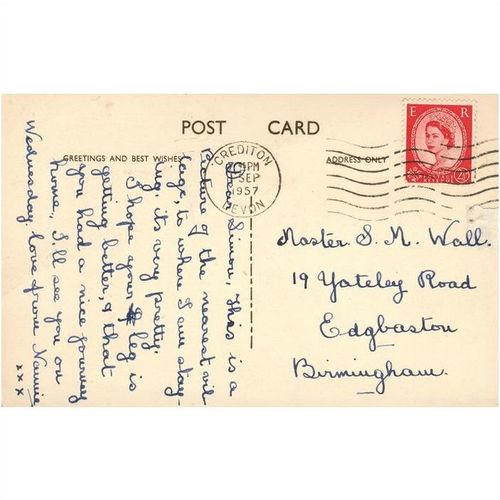 POST CARD
GREETINGS AND BEST WISHES
ADDRESS ONLY
CREDITON
PM
SEP
1957
DEVON
E R
Dear Simon, This is a
picture of the nearest vil
lage, to where I am stay-
ing, it's very pretty.
I hope your leg is
getting better, & that
you had a nice journey
home, I'll see you on
Wednesday. love from Nannie
x x x
Master S. M. Wall.
19 Yateley Road
Edgbaston
Birmingham.